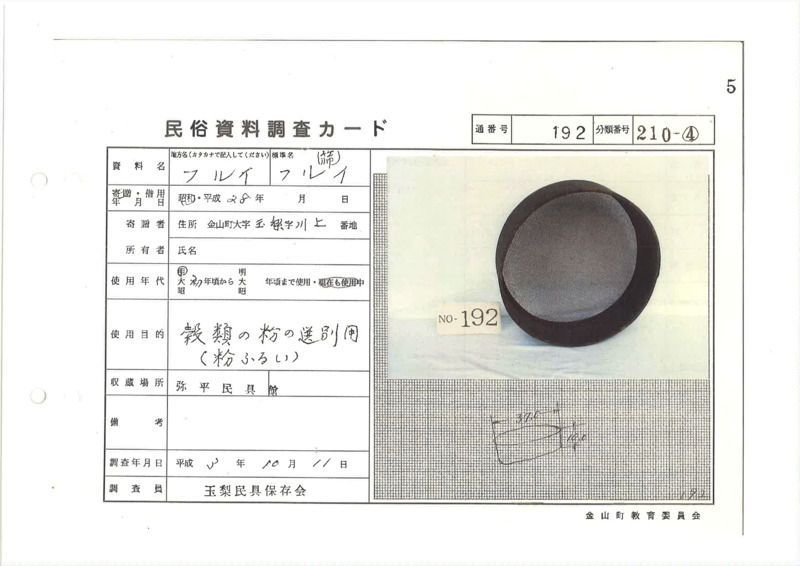 5
民俗資料調査カード
通番号 192 分類番号 210-④
資料名 地方名(カタカナで記入してください) フルイ 標準名 (篩) フルイ
寄贈・借用年月日 昭和・平成 28年 月 日
寄贈者 住所 金山町大字玉梨字川上 番地
所有者 氏名
使用年代 明大昭 初年頃から 明大昭 年頃まで使用・現在も使用中
使用目的 穀類の粉の選別用
(粉ふるい)
収蔵場所 弥平民具館
備考
調査年月日 平成 3年 10月 11日
調査員 玉梨民具保存会
NO-192
37.5
192
金山町教育委員会